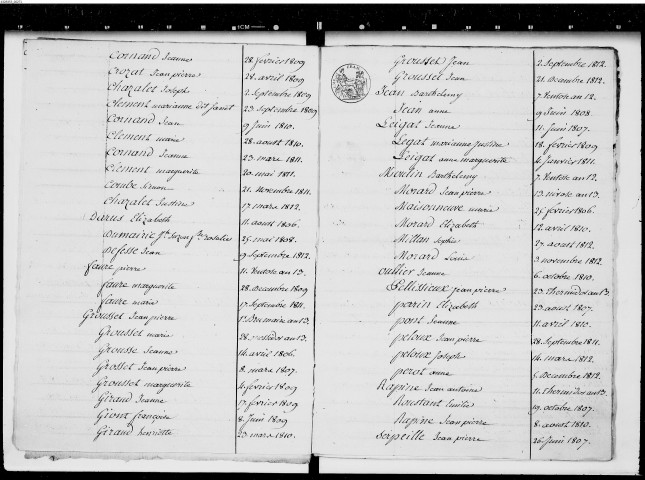 Cornand Jeanne 28 fevrier 1809
Crozat Jean pierre 28 avril 1809
Chazalet Joseph 2 Septembre 1809
Clement marianne dit Janot 23 Septembre 1809
Cornand Jean 9 Juin 1810.
Clement marie 28 aout 1810.
Cornand Jeanne 23 mars 1811.
Clement marguerite 20 mai 1811.
Combe Simon 21 novembre 1811.
Chazalet Justine 17 mars 1812.
Darus Elizabeth 11 aout 1806.
Dumairie 25 mai 1808.
Defesse Jean 9 Septembre 1812.
faure pierre 11 Ventose an 13.
faure marguerite 28 Decembre 1809
faure marie 17 Septembre 1811.
Grousset Jean pierre 1er Brumaire an 13
Grousset marie
Grousse Jeanne 14 avril 1806.
Grosset Jean pierre 8 mars 1807.
Grousset marguerite 4 fevrier 1809
Giraud Jeanne 17 fevrier 1809
Giont françoise 8 Juin 1809
Giraud henriette 23 mars 1810.
Grousset Jean 2 Septembre 1812.
Grousset Jean 21 Decembre 1812.
Jean Barthelemy 7 Ventose an 12.
Jean anne 9 Juin 1808.
Leigat Jeanne 11 Juin 1807.
Legat marianne Justine 18 fevrier 1809
Leigat anne marguerite 4 Janvier 1811.
Moulin Barthelemy 7 Ventose an 12.
Morard Jean pierre 13 nivose an 13.
Maisonneuve marie 25 fevrier 1806.
Morard Elizabeth 12 avril 1810.
Millan Sophie 27 aout 1812.
Morard Louise 3 novembre 1812.
Oullier Jeanne 6 octobre 1810.
Pellissieux Jean pierre 23 Thermidor an 13
perrin Elizabeth 23 aout 1807.
pont Jeanne 11 avril 1810.
peloux Jean pierre 28 Septembre 1811.
peloux Joseph 14 mars 1812.
perot anne 5 Decembre 1812.
Rapine Jean antoine 11 Thermidor an 13.
Roustant Emilie 19 octobre 1807.
Rapine Jean pierre 8 aout 1810.
Serpeille Jean pierre 26 Juin 1807.